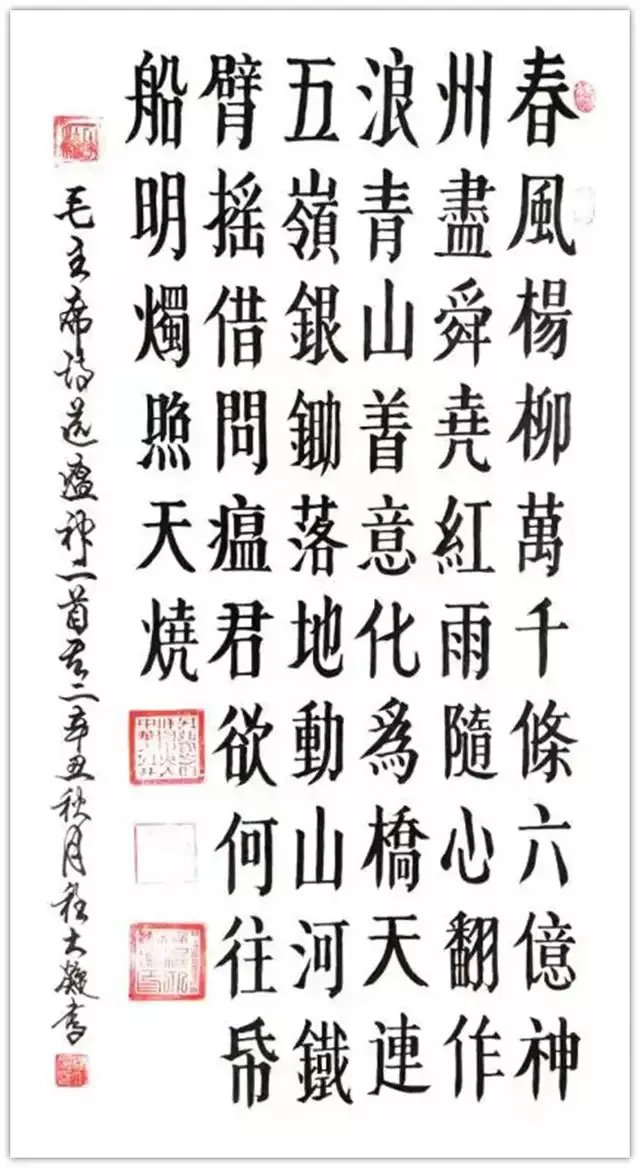 春風楊柳萬千條六億神
州盡舜堯紅雨隨心翻作
浪青山着意化為橋天連
五嶺銀鋤落地動山河鐵
臂摇借問瘟君欲何往帋
船明燭照天燒
毛主席詩送瘟神二首其二辛丑秋月程大凝書